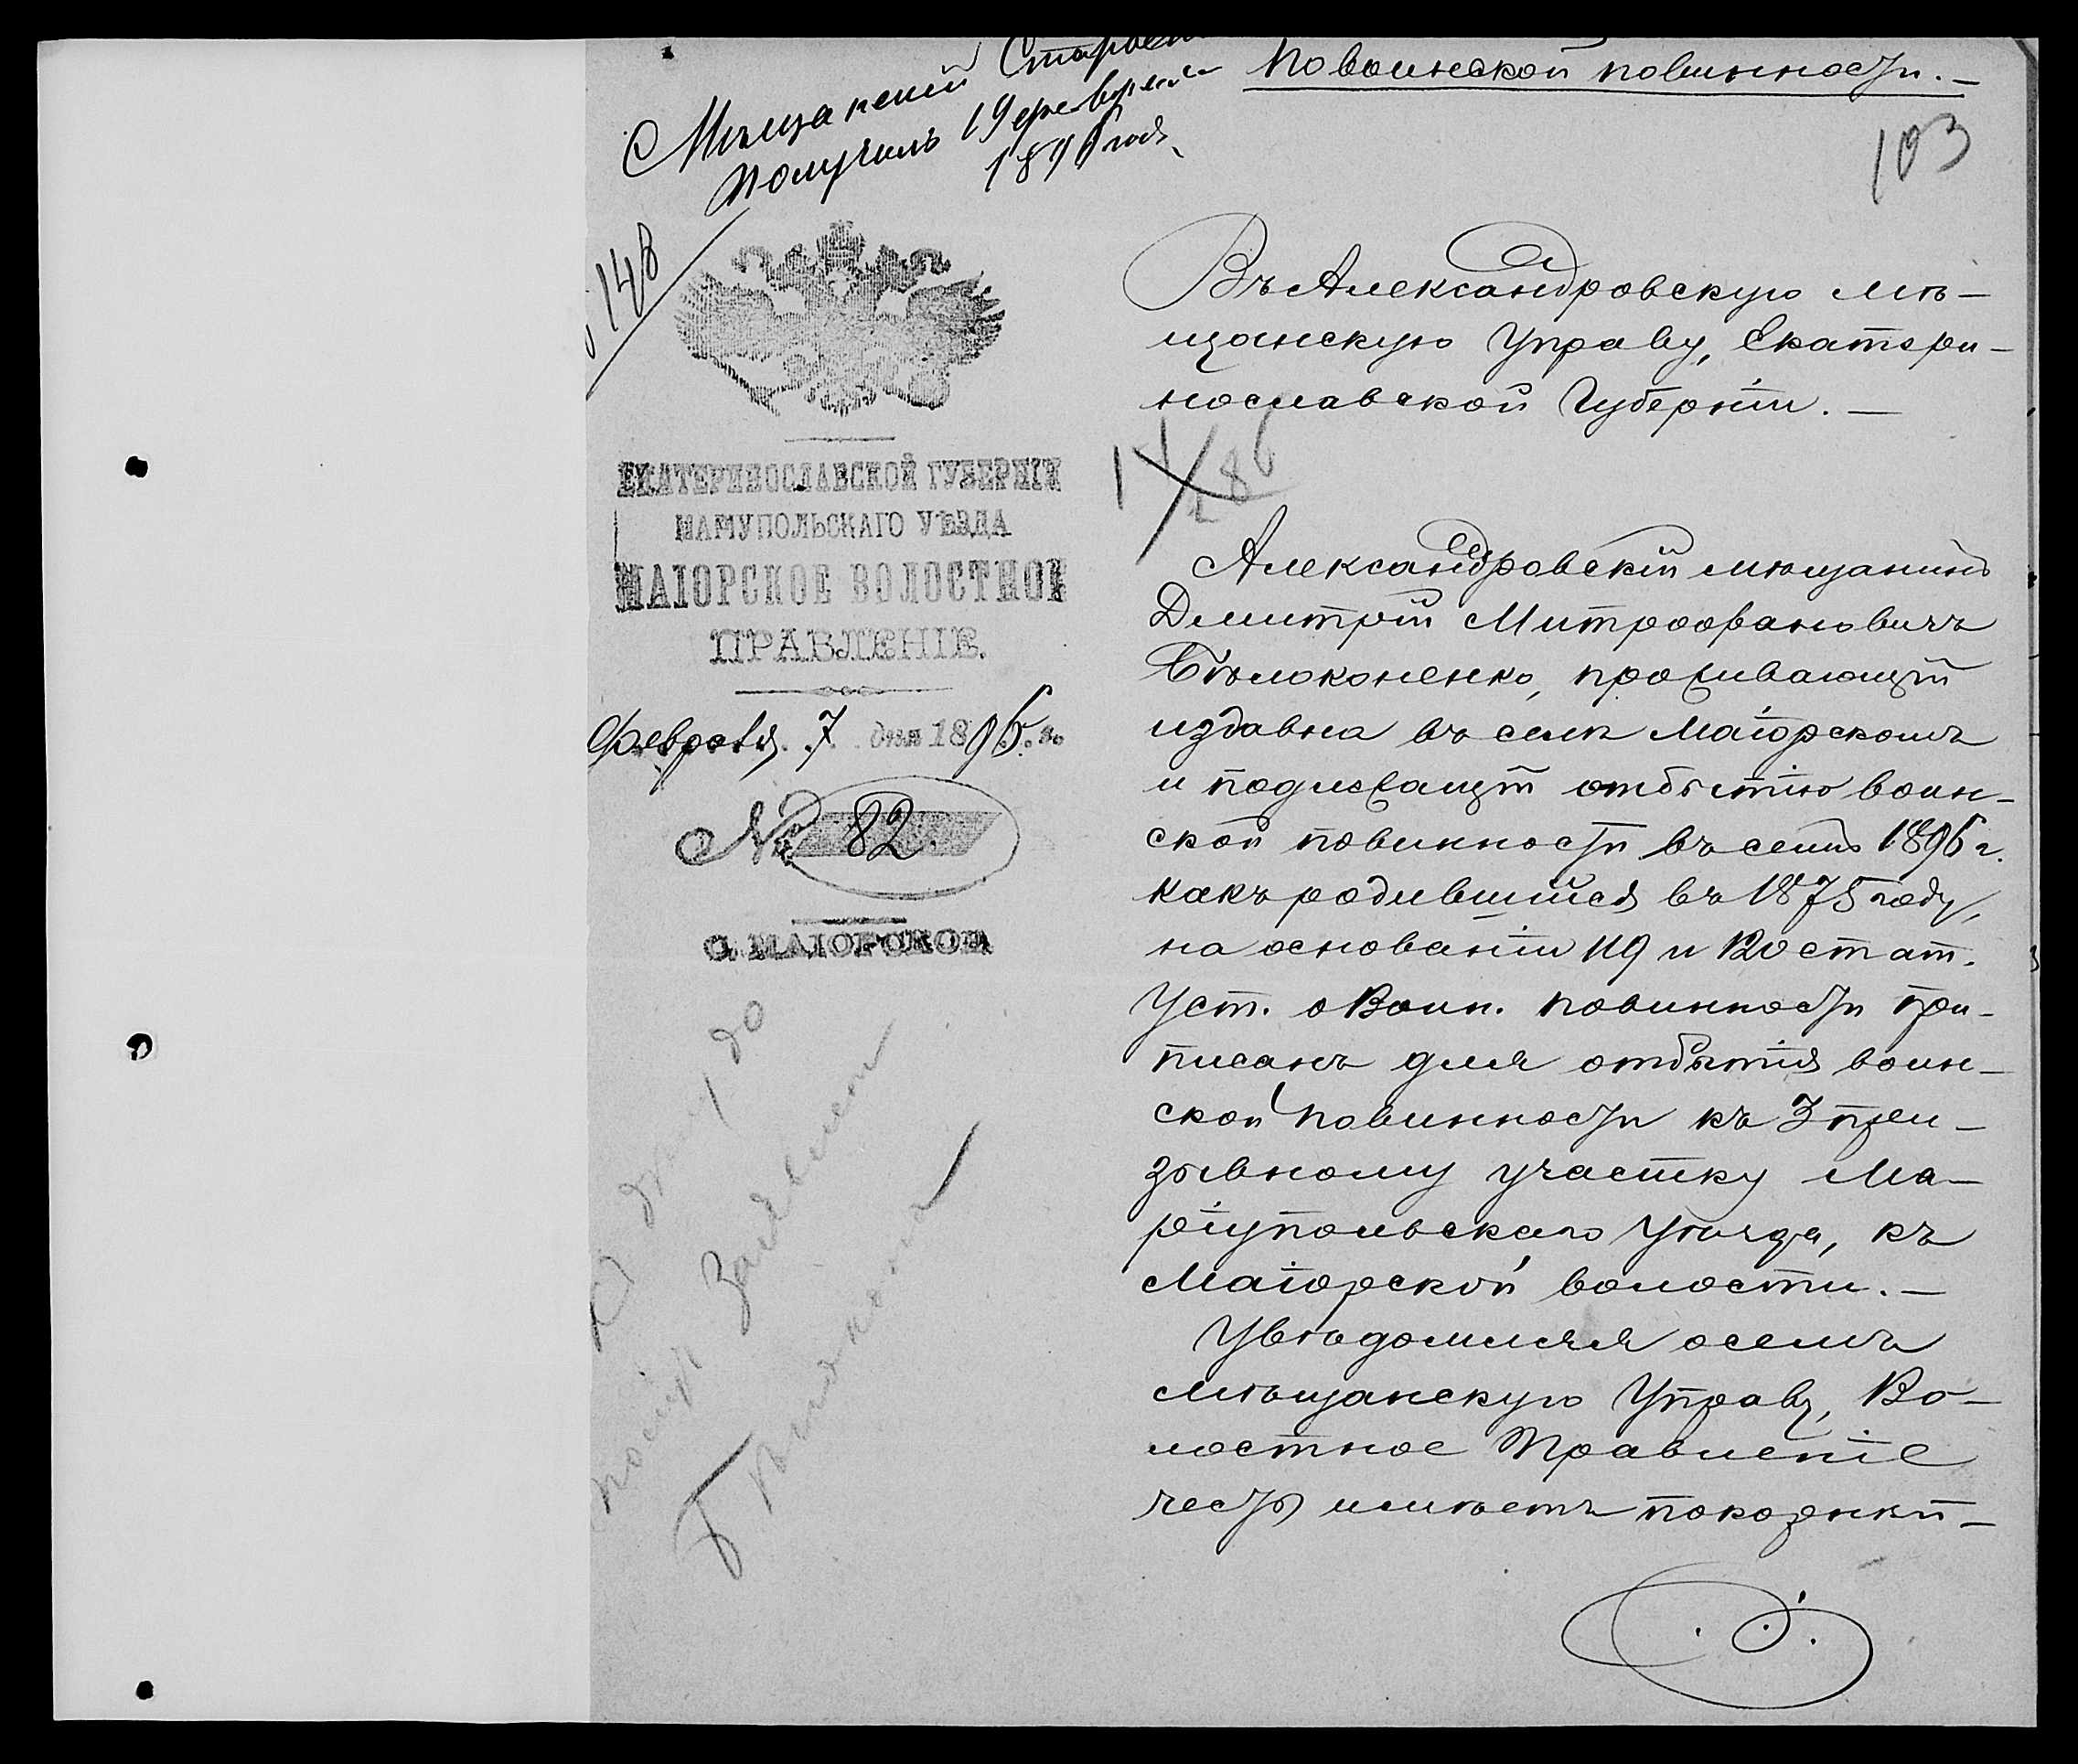 По воинской повинности. —
103
Мѣщанскій Старо
получилъ 19 февраля
1896 года
148
ЕКАТЕРИНОСЛАВСКОЙ ГУБЕРНІИ
МАРІУПОЛЬСКАГО УѢЗДА
МАІОРСКОЕ ВОЛОСТНОЕ
ПРАВЛЕНІЕ.
Февраля 7 дня 1896 г.
№ 82.
С. МАІОРСКОЕ
Въ Александровскую мѣ-
щанскую Управу, Екатери-
нославской Губерніи. —
Александровскій мѣщанинъ
Димитрій Митрофановичъ
Бѣлоконенко, проживающій
издавна въ селѣ Маіорскомъ
и подлежащій отбытію воин-
ской повинности въ семъ 1896 г.
какъ родившійся въ 1875 году,
на основаніи 119 и 120 стат.
Уст. о Воин. повинности при-
писанъ для отбытія воин-
ской повинности къ 3 при-
зывному участку Ма-
ріупольскаго Уѣзда, къ
Маіорской волости. —
Увѣдомляя о семъ
мѣщанскую Управу, Во-
лостное Правленіе
честь имѣетъ покорнѣй-